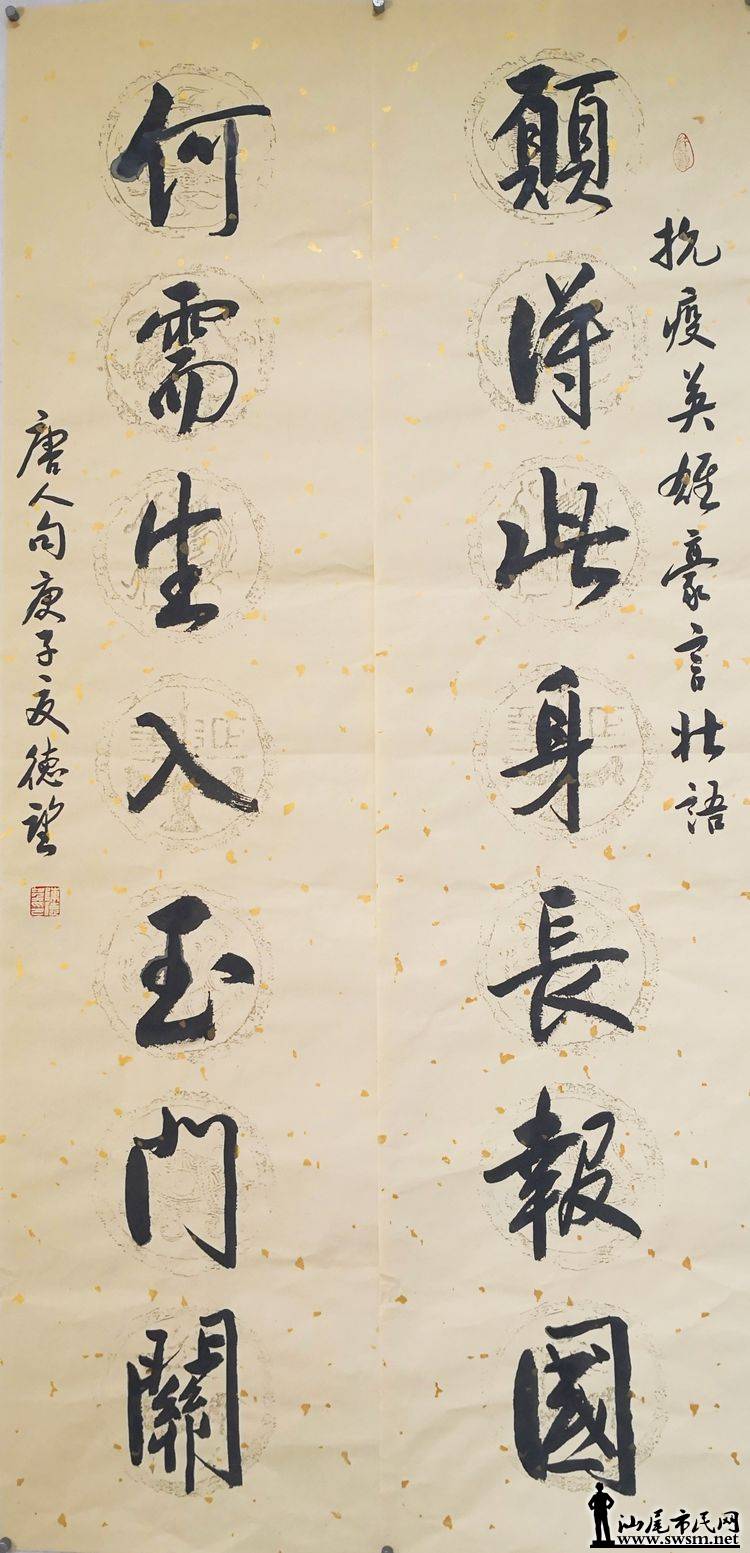 抗疫英雄豪言壯語
願得此身長報國
何需生入玉門關
唐人句庚子夏德望
汕尾市民网
www.swsm.net